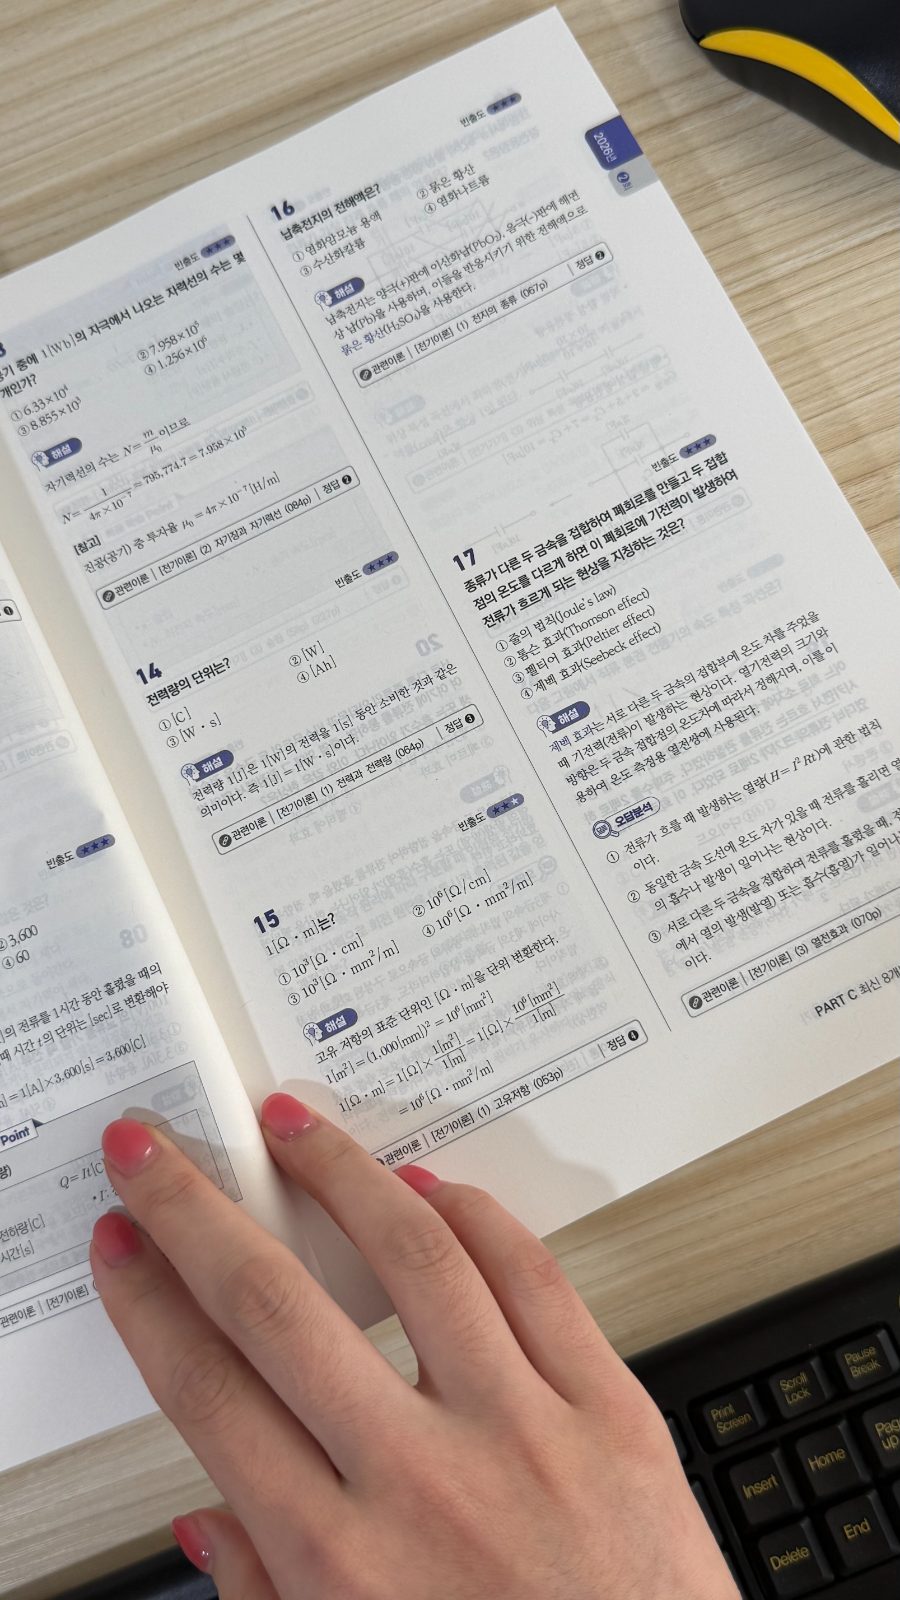 빈출도 ★★★
②3,600
④60
의 전류를 1시간 동안 흘렸을 때의
때 시간 t의 단위는 [sec]로 변환해야
=1[A]×3,600[s]=3,600[C]
Point
Q=It[C]
전하량[C]
시간[s]
관련이론 | [전기이론]
빈출도 ★★★
공기 중에 1[Wb]의 자극에서 나오는 자력선의 수는 몇
개인가?
①6.33×10⁴ ②7.958×10⁵
③8.855×10⁵ ④1.256×10⁶
해설
자기력선의 수는 N=m/μ₀이므로
N=1/4π×10⁻⁷=795,774.7=7.958×10⁵
[참고]
진공(공기) 중 투자율 μ₀=4π×10⁻⁷[H/m]
관련이론 | [전기이론] (2) 자기장과 자기력선 (084p) | 정답 ❷
빈출도 ★★★
14
전력량의 단위는?
①[C] ②[W]
③[W·s] ④[Ah]
해설
전력량 1[J]은 1[W]의 전력을 1[s] 동안 소비한 것과 같은
의미이다. 즉 1[J]=1[W·s]이다.
관련이론 | [전기이론] (1) 전력과 전력량 (064p) | 정답 ❸
빈출도 ★★★
15
1[Ω·m]는?
①10³[Ω·cm] ②10⁶[Ω/cm]
③10³[Ω·mm²/m] ④10⁶[Ω·mm²/m]
해설
고유 저항의 표준 단위인 [Ω·m]을 단위 변환한다.
1[m²]=(1,000[mm])²=10⁶[mm²]
1[Ω·m]=1[Ω]×1[m²]/1[m]=1[Ω]×10⁶[mm²]/1[m]
=10⁶[Ω·mm²/m]
관련이론 | [전기이론] (1) 고유저항 (053p) | 정답 ❹
2026년
빈출도 ★★★
16
납축전지의 전해액은?
①염화암모늄 용액 ②묽은 황산
③수산화칼륨 ④염화나트륨
해설
납축전지는 양극(+)판에 이산화납(PbO₂), 음극(-)판에 해면
상 납(Pb)을 사용하며, 이들을 반응시키기 위한 전해액으로
묽은 황산(H₂SO₄)을 사용한다.
관련이론 | [전기이론] (1) 전지의 종류 (067p) | 정답 ❷
빈출도 ★★★
17
종류가 다른 두 금속을 접합하여 폐회로를 만들고 두 접합
점의 온도를 다르게 하면 이 폐회로에 기전력이 발생하여
전류가 흐르게 되는 현상을 지칭하는 것은?
①줄의 법칙(Joule's law)
②톰슨 효과(Thomson effect)
③펠티어 효과(Peltier effect)
④제벡 효과(Seebeck effect)
해설
제벡 효과는 서로 다른 두 금속의 접합부에 온도 차를 주었을
때 기전력(전류)이 발생하는 현상이다. 열기전력의 크기와
방향은 두 금속 접합점의 온도차에 따라서 정해지며, 이를 이
용하여 온도 측정용 열전쌍에 사용된다.
오답분석
① 전류가 흐를 때 발생하는 열량(H=I²Rt)에 관한 법칙
이다.
② 동일한 금속 도선에 온도 차가 있을 때 전류를 흘리면 열
의 흡수나 발생이 일어나는 현상이다.
③ 서로 다른 두 금속을 접합하여 전류를 흘렸을 때,
에서 열의 발생(발열) 또는 흡수(흡열)가 일어나
이다.
관련이론 | [전기이론] (3) 열전효과 (070p)
PART C 최신 8개
Print Screen
Scroll Lock
Pause Break
Insert
Home
Page up
Delete
End